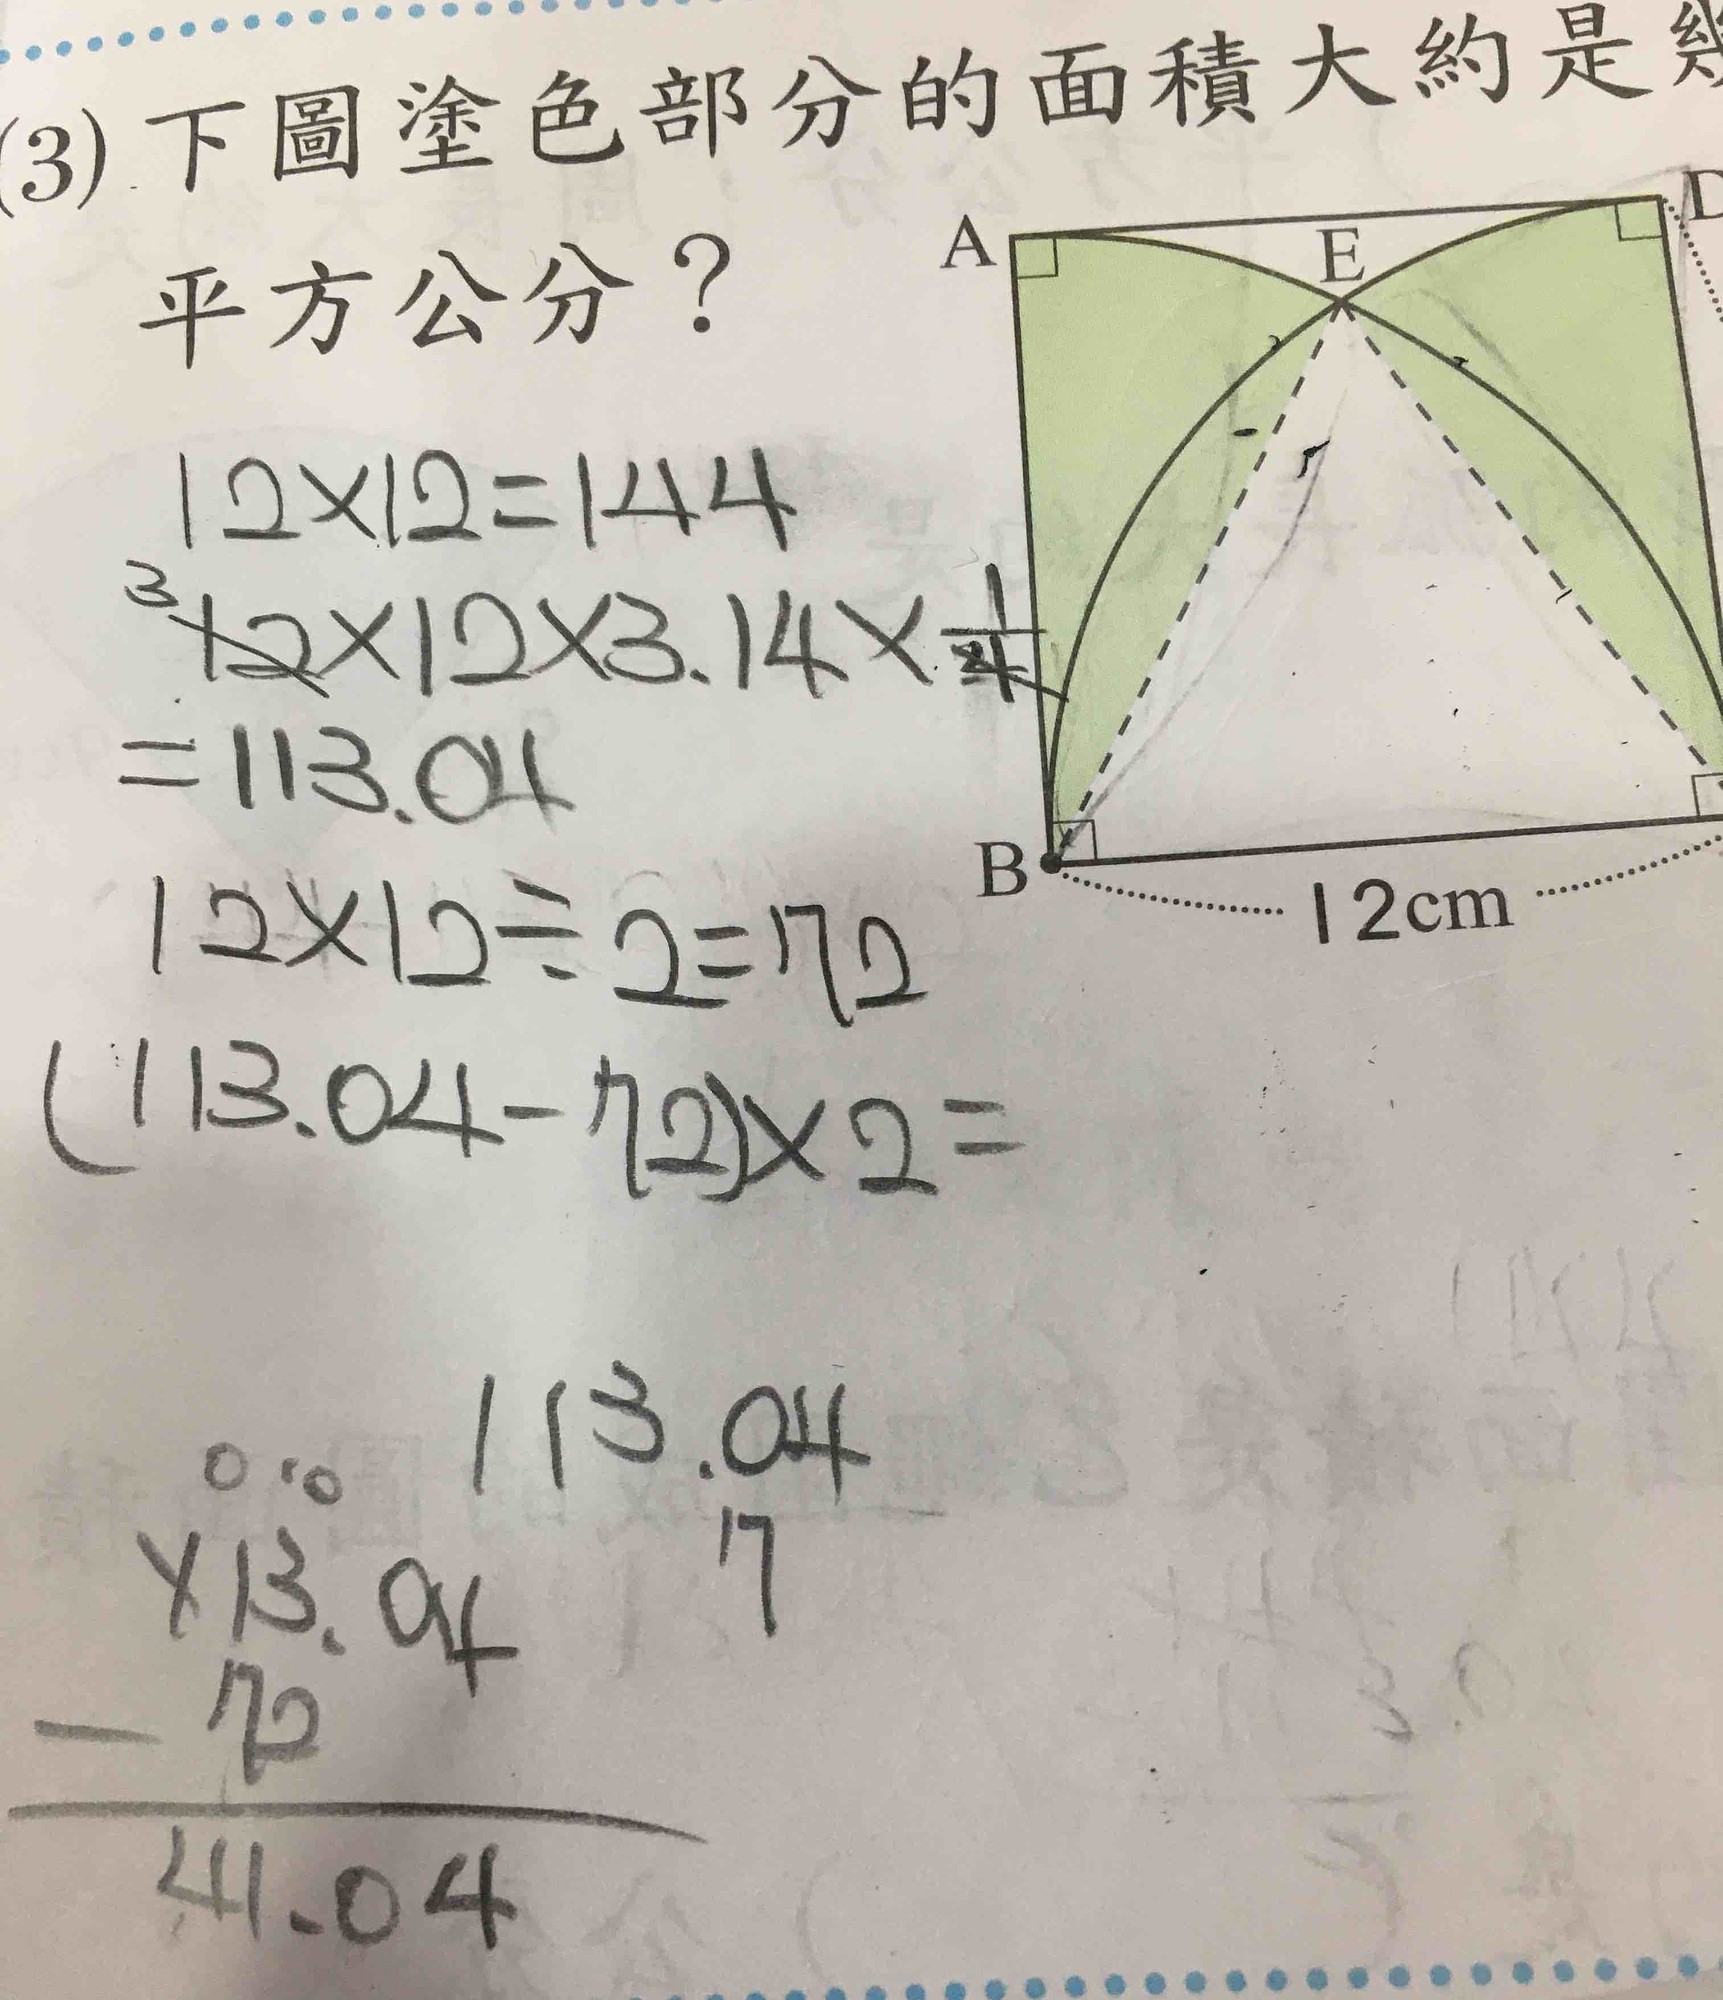 (3) 下圖塗色部分的面積大約是幾
平方公分？
A
E
D
B
12cm
12×12=144
3
12×12×3.14×1/4
=113.04
12×12÷2=72
(113.04-72)×2=
113.04
7
0 10
113.04
- 72
41.04